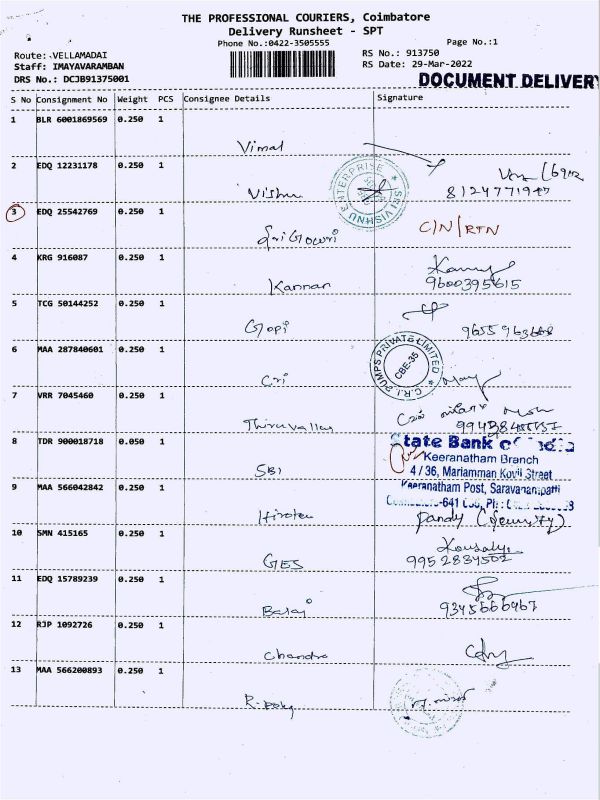 THE PROFESSIONAL COURIERS, Coimbatore
Delivery Runsheet - SPT
Phone No.:0422-3505555
Page No.:1
Route: VELLAMADAI
Staff: IMAYAVARAMBAN
DRS No.: DCJB91375001
RS No.: 913750
RS Date: 29-Mar-2022
DOCUMENT DELIVERY
S No Consignment No Weight PCS Consignee Details Signature
1 BLR 6001869569 0.250 1
Vimal
2 EDQ 12231178 0.250 1
Vishnu
SRI VISHNU ENTERPRISE
3 EDQ 25542769 0.250 1
Sri Gowri C/N/RTN
4 KRG 916087 0.250 1
Kannan 9600395615
5 TCG 50144252 0.250 1
Gopi
6 MAA 287840601 0.250 1
Cri
C.R.I. PUMPS PRIVATE LIMITED
CBE-35
7 VRR 7045460 0.250 1
8 TDR 900018718 0.050 1
SBI
State Bank of India
Keeranatham Branch
4 / 36, Mariamman Kovil Street
Keeranatham Post, Saravanampatti
9 MAA 566042842 0.250 1
Pandy (Security)
10 SMN 415165 0.250 1
GES 9952834502
11 EDQ 15789239 0.250 1
Balaj 9345666467
12 RJP 1092726 0.250 1
Chandra
13 MAA 566200893 0.250 1